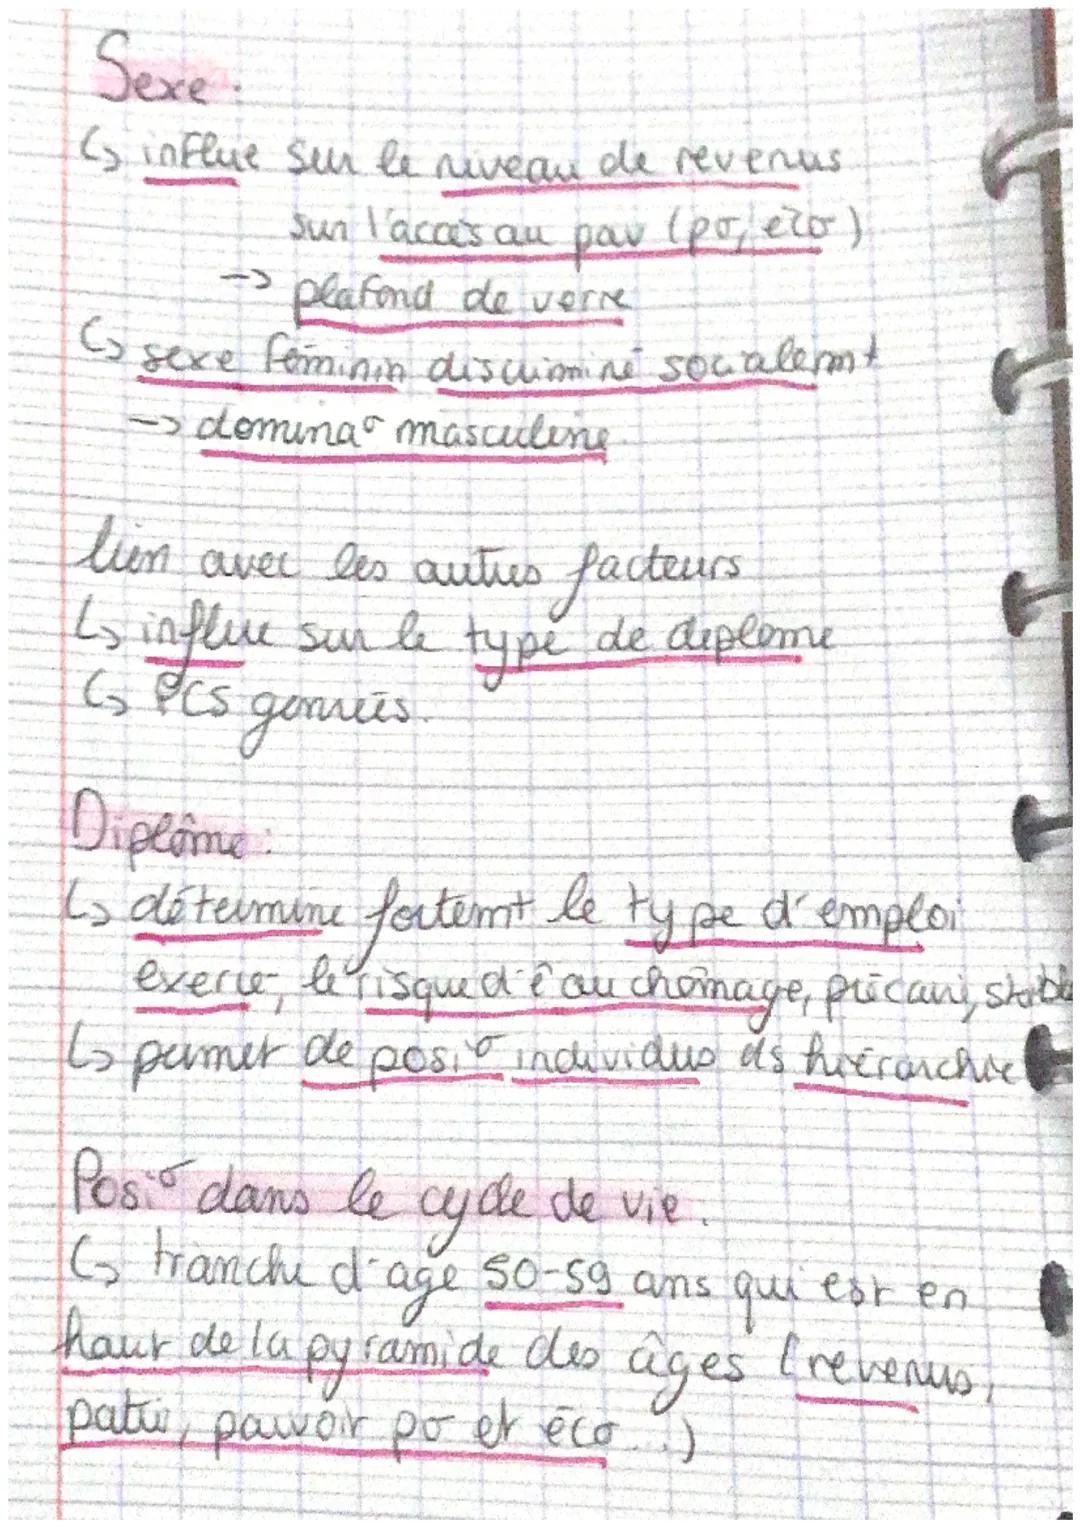 Sexe :
↳ influe sur le niveau de revenus
sur l'accès au pav (po, éco)
-> plafond de verre
↳ sexe féminin discriminé socialemt
-> dominaº masculine
lien avec les autres facteurs
↳ influe sur le type de diplome
↳ PCS genrées.
Diplôme :
↳ détermine fortemt le type d'emploi
exercé, le risque d'ê au chômage, précaire, stable
↳ permet de posiº individus ds hiérarchie
Posiº dans le cycle de vie.
↳ tranche d'age 50-59 ans qui est en
haut de la pyramide des âges (revenus,
patri, pouvoir po et éco...)